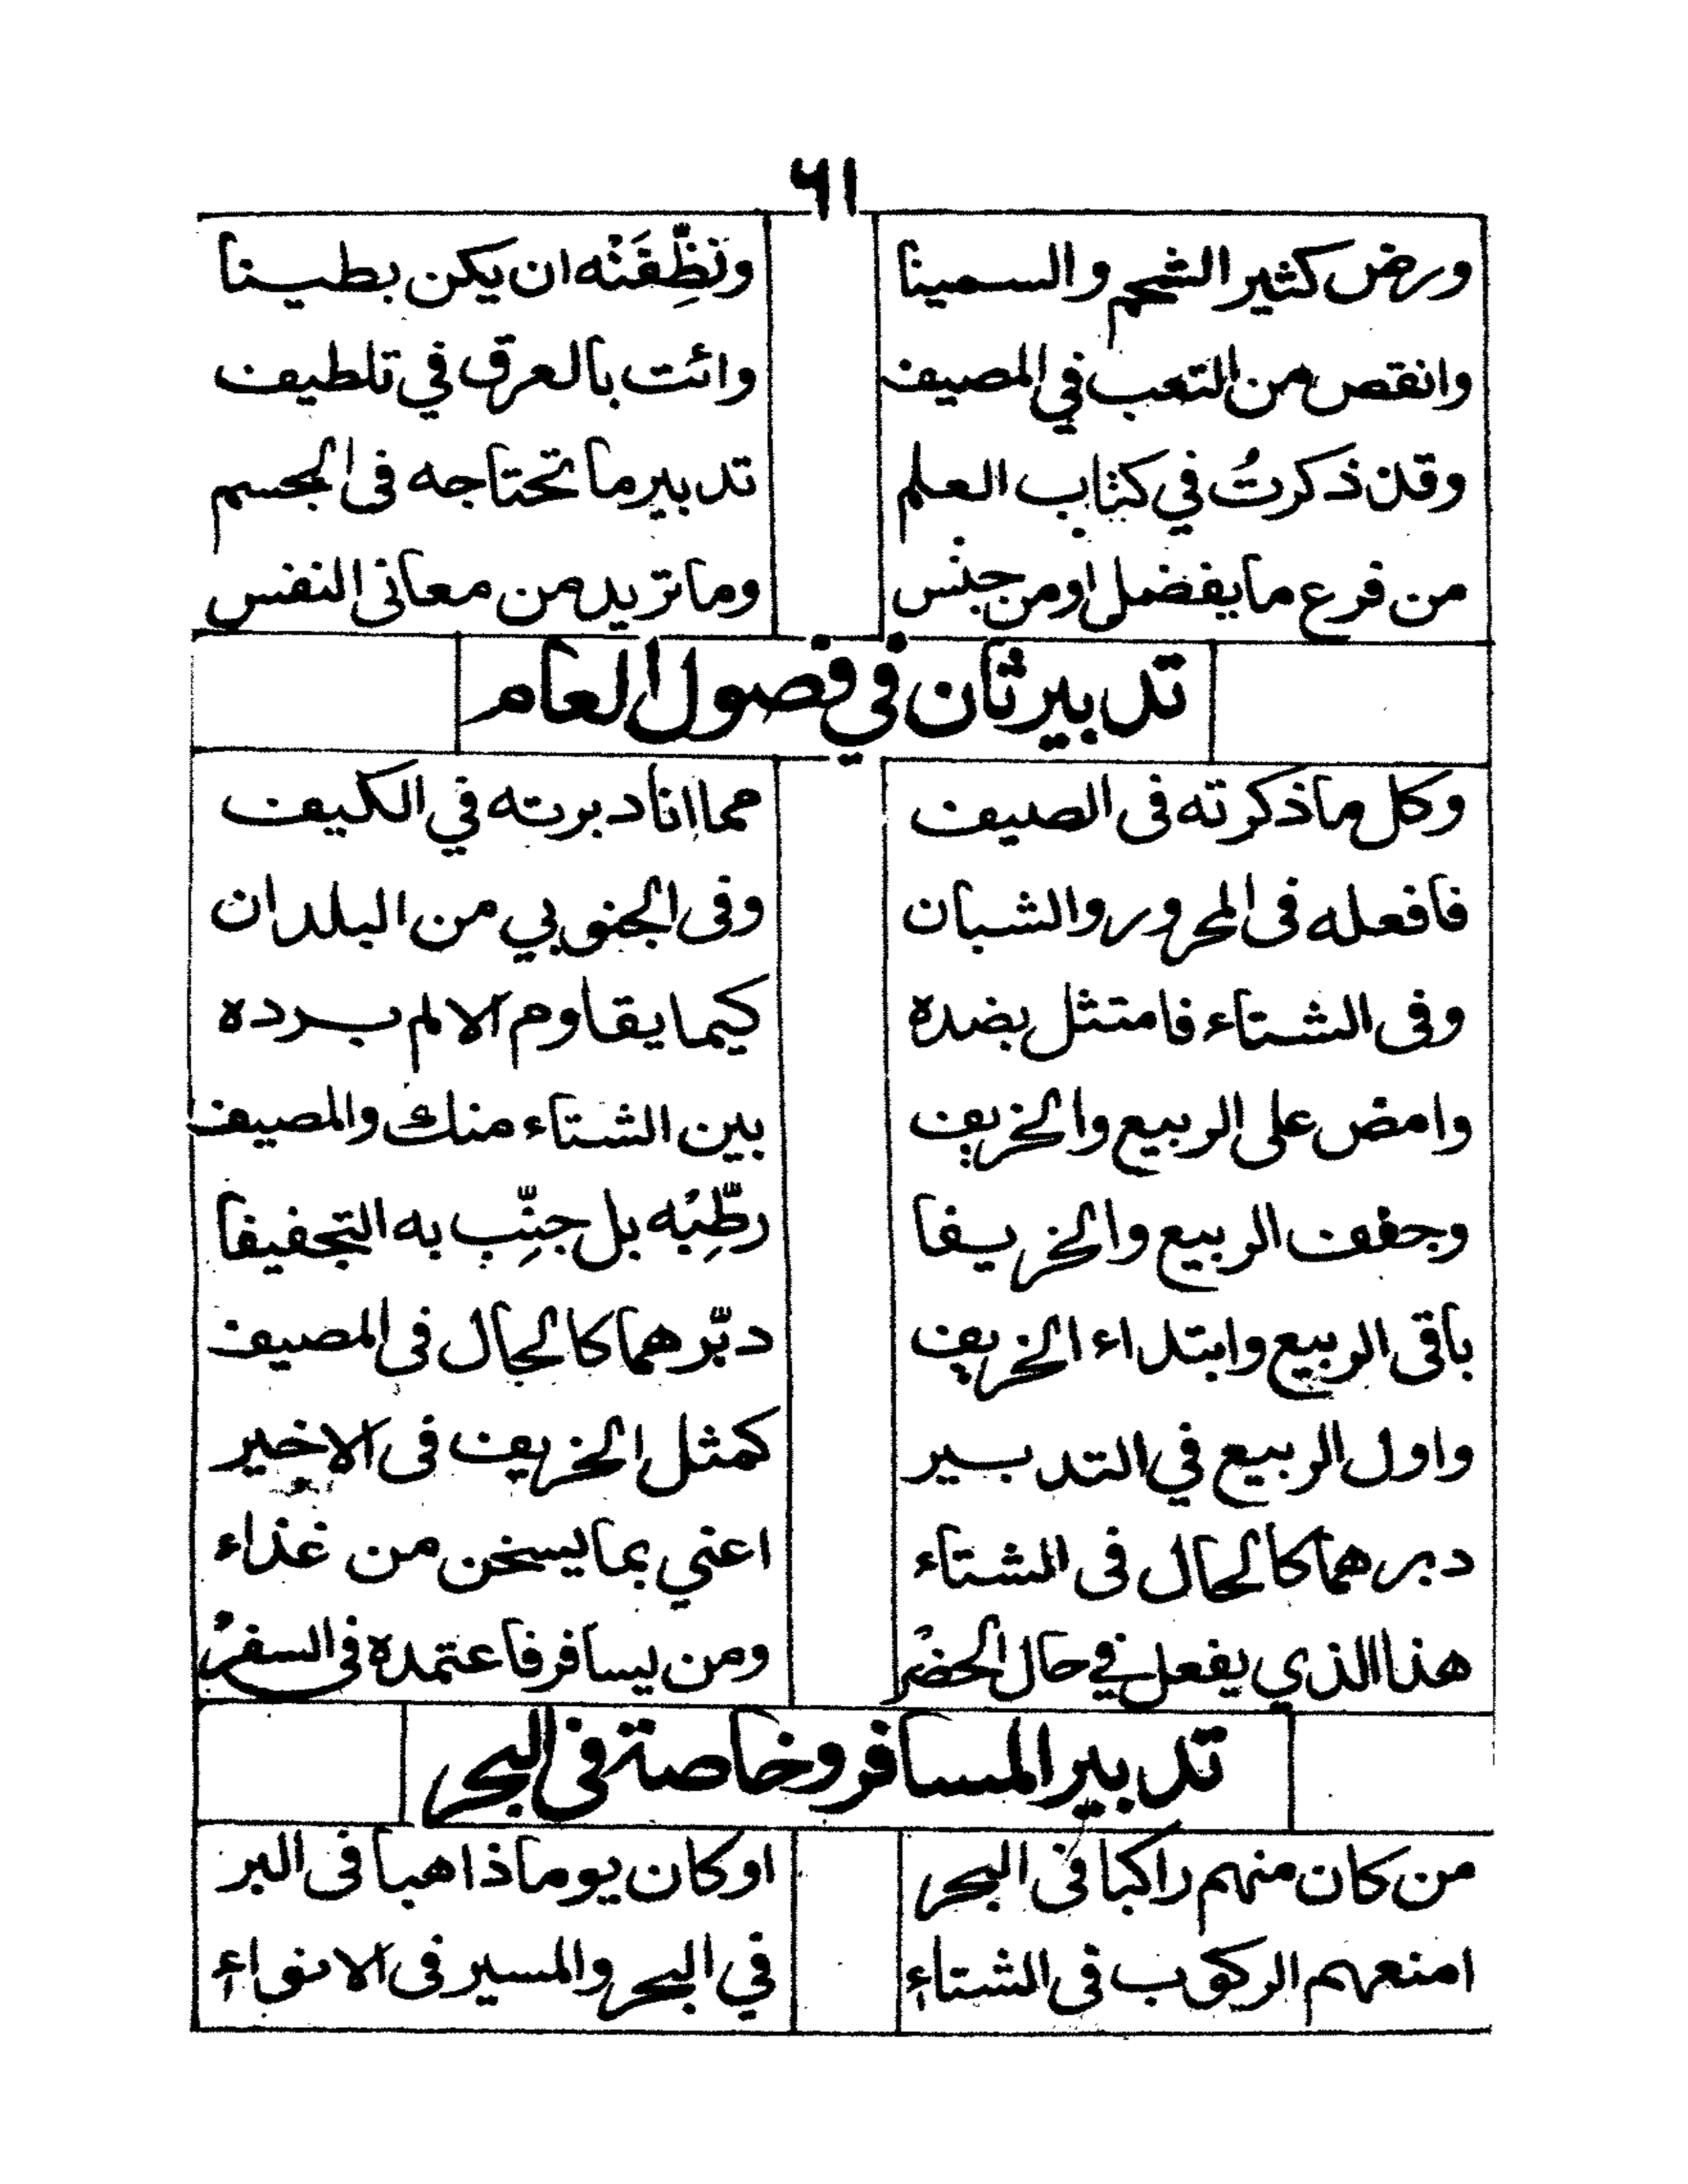 ٦١
ورض كثير الشحم والسمينا ونظِّفَنْه ان يكن بطينا
وانقص من التعب في المصيف وائت بالعرق في تلطيف
وقد ذكرتُ في كتاب العلم تدبير ما تحتاجه فى الجسم
من فرع ما يفضل او من جنس وما تريد من معانى النفس
تدبير ثان في فصول العام
وكل ما ذكرته فى الصيف مما انا دبرته في الكيف
فافعله فى المحرور والشبان وفى الجنوبي من البلدان
وفى الشتاء فامتثل بضده كيما يقاوم الالم برده
وامض على الربيع والخريف بين الشتاء منك والمصيف
وجفف الربيع والخريفا رطِّبْه بل جنِّب به التجفيفا
باقى الربيع وابتداء الخريف دبّر هما كالحال فى المصيف
واول الربيع في التدبير كمثل الخريف فى الاخير
دبر هما كالحال فى الشتاء اعني بما يسخن من غذاء
هذا الذي يفعل في حال الحضرْ ومن يسافر فاعتمده فى السفرْ
تدبير المسافر وخاصة فى البحر
من كان منهم راكبا فى البحر او كان يوما ذاهبا فى البر
امنعهم الركوب فى الشتاءِ في البحر والمسير فى الانواءِ